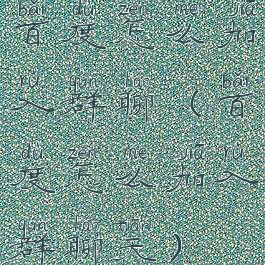 bǎi dù zěn me jiā
百度怎么加
rù qún liáo bǎi
入群聊（百
dù zěn me jiā rù
度怎么加入
qún liáo tiān
群聊天）